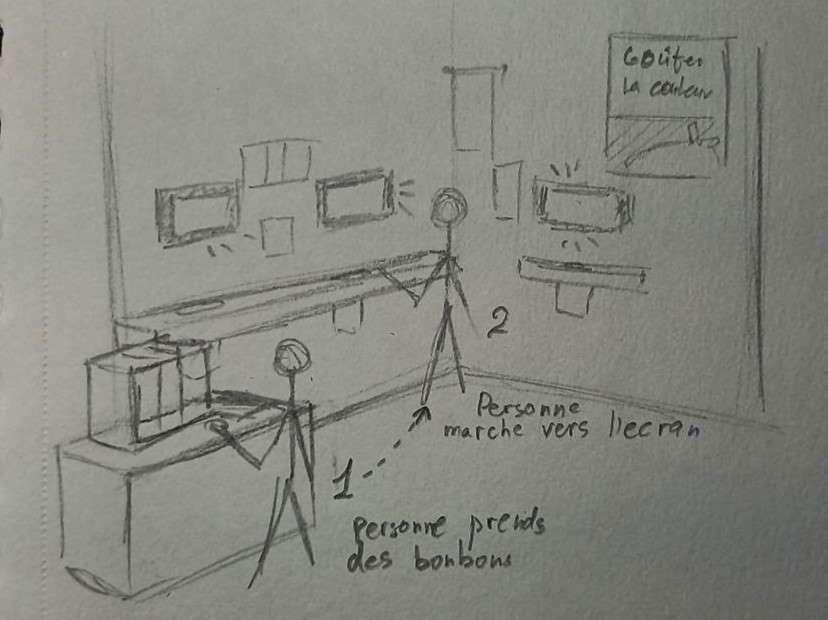 Goûter
la couleur
2
Personne
marche vers l'ecran
1
personne prends
des bonbons